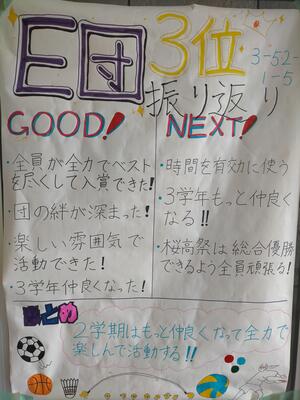 E団 3位
3-52-
1-5
振り返り
GOOD!
NEXT!
・全員が全力でベスト
を尽くして入賞できた!
・団の絆が深まった!
・楽しい雰囲気で
活動できた!
・3学年仲良くなった!
・時間を有効に使う
・3学年もっと仲良く
なる!!
・桜高祭は総合優勝
できるよう全員頑張る!
まとめ
2学期はもっと仲良くなって全力で
楽しんで活動する!!